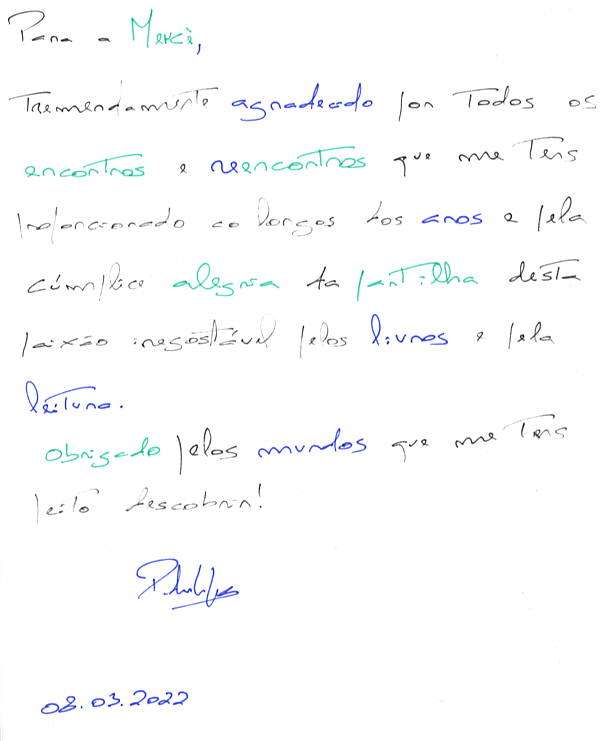 Para a Mercè,
Tremendamente agradecido por todos os
encontros e reencontros que me tens
proporcionado ao longos dos anos e pela
cúmplice alegria da partilha desta
paixão inegostável pelos livros e pela
leitura.
Obrigado pelos mundos que me tens
feito descobrir!
08.03.2022